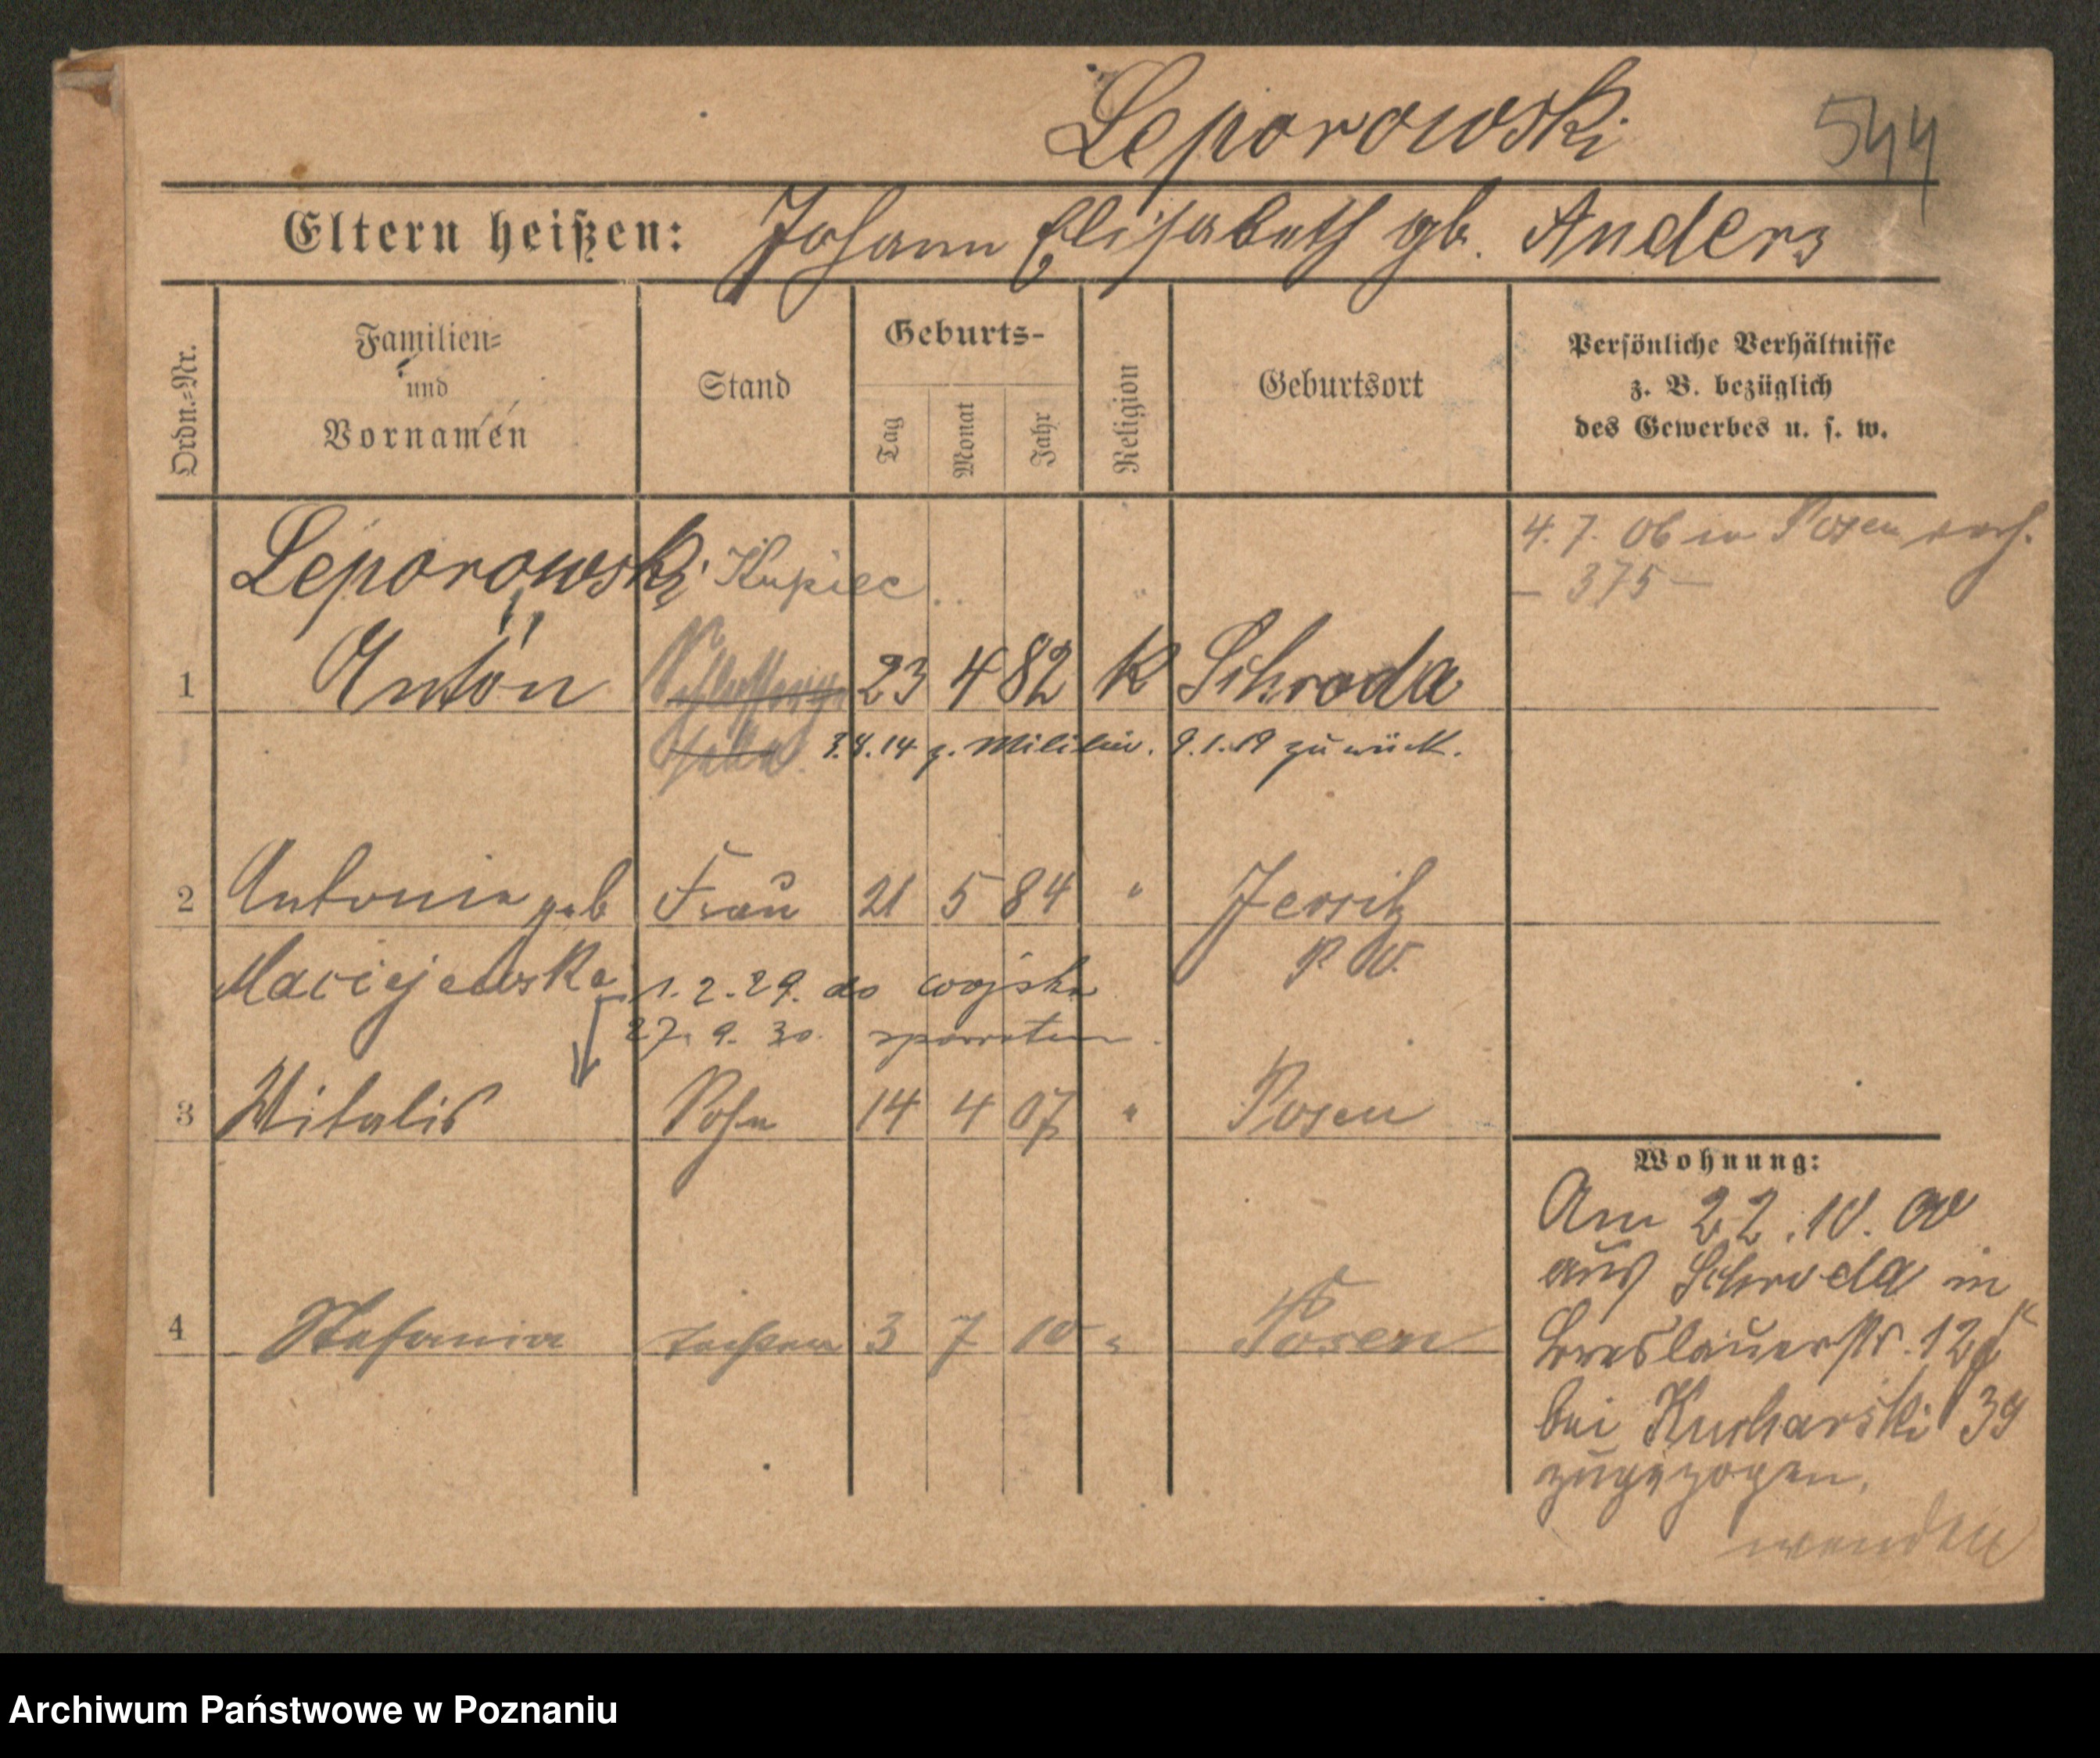 Leporowski 544
Eltern heißen: Johann Elisabeth gb. Anders
Ordn.-Nr.
Familien-
und
Vornamen
Stand
Geburts-
Tag
Monat
Jahr
Religion
Geburtsort
Persönliche Verhältnisse
z. B. bezüglich
des Gewerbes u. s. w.
4. 7. 06 in Posen verh.
– 375 –
Leporowski Kupiec
1 Anton 23 4 82 K Schroda
3.8.14 z. Militär. 9.1.19 zurück.
2 Antonie geb Frau 21 5 84 " Jersitz
Maciejewska P. W.
1. 2. 29. do wojska
27. 9. 30.
3 Witalis Sohn 14 4 07 " Posen
4 Stefania 3 7 10 " Posen
Wohnung:
Am 22. 10. 00
aus Schroda in
Breslauerstr. 12
bei Kucharski 39
zugezogen.
wenden
Archiwum Państwowe w Poznaniu